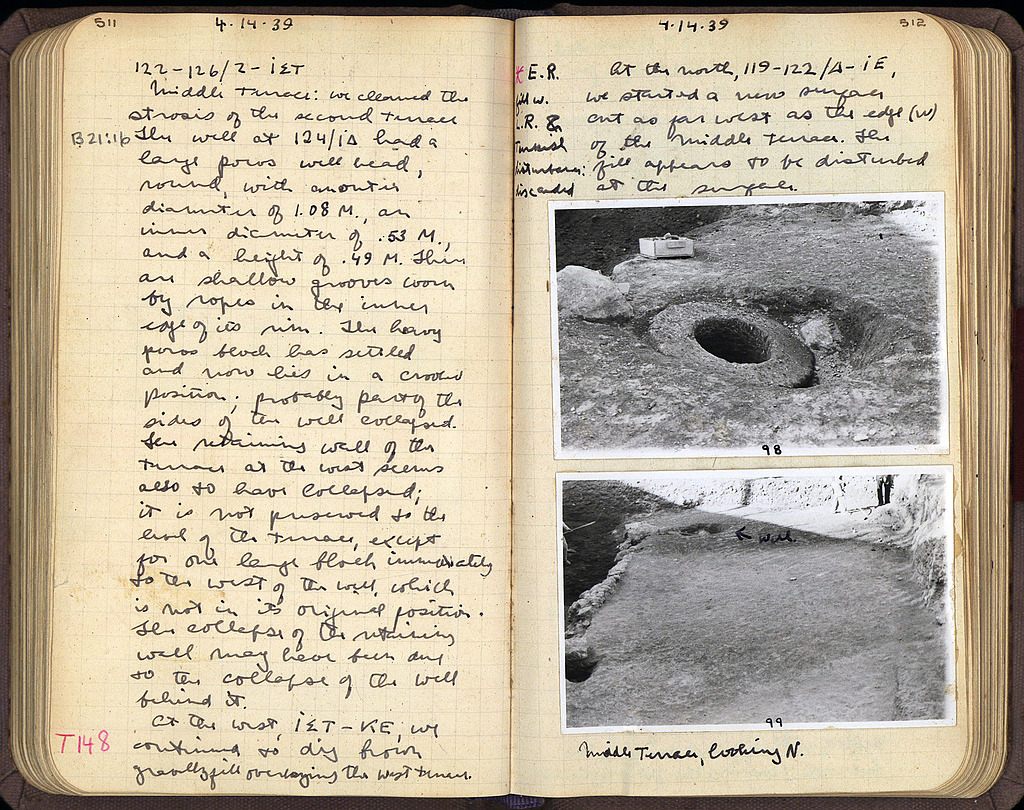 511
4.14.39
122-126/Z-ΙΣΤ
Middle Terrace: we cleaned the
strosis of the second terrace
B21:1b The well at 124/ΙΔ had a
large poros well head,
round, with an outer
diameter of 1.08 M., an
inner diameter of .53 M.,
and a height of .49 M. There
are shallow grooves worn
by ropes in the inner
edge of its rim. The heavy
poros block has settled
and now lies in a crooked
position; probably part of the
sides of the well collapsed.
The retaining wall of the
terrace at the west seems
also to have collapsed;
it is not preserved to the
level of the terrace, except
for one large block immediately
to the west of the well, which
is not in its original position.
The collapse of the retaining
wall may have been due
to the collapse of the well
behind it.
At the west, ΙΣΤ-ΚΕ, we
T148 continued to dig brown
gravelly fill overlaying the west terrace.
4.14.39
512
* E.R.
fill w.
L.R. &
Turkish
disturbance:
discarded
At the north, 119-122/Δ-ΙΕ,
we started a new surface
cut as far west as the edge (W)
of the Middle Terrace. The
fill appears to be disturbed
at the surface.
98
← Well
99
Middle Terrace, looking N.